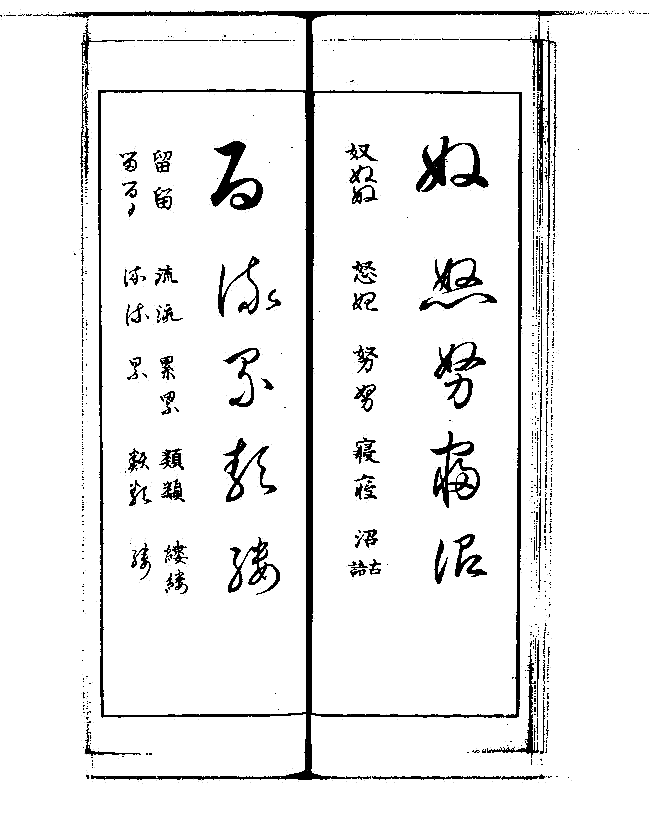 奴怒努寝沼
奴奴奴 怒怒 努努 寝寝 沼 古語
留流累類縷
留留 流流 累累 類類 縷縷
留留る 流流 累 類類 縷